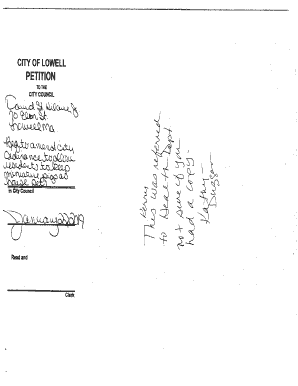 CITY OF LOWELL
PETITION
TO THE
CITY COUNCIL
David St. Hilaire Jr.
Lowell Ma
Req to amend city
ordinance to allow
residents to keep
miniature pigs as
house pets
In City Council
January 22 2019
Read and
Clerk
Kerry
This was referred
to Health Dept
not sure if you
had a copy.
Kathy
Duggan